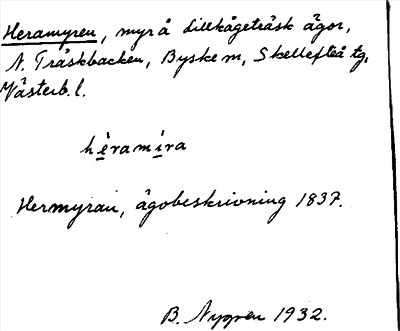 Heramyren, myr å Lillkågeträsk ägor,
N. Träskbacken, Byske sn, Skellefteå tg,
Västerb. l.
hèramìra
Hermyran, ägobeskrivning 1837.
B. Nygren 1932.